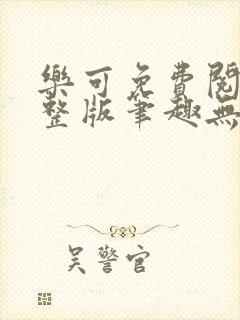 樂可免費閱
整版筆趣無
吴警官